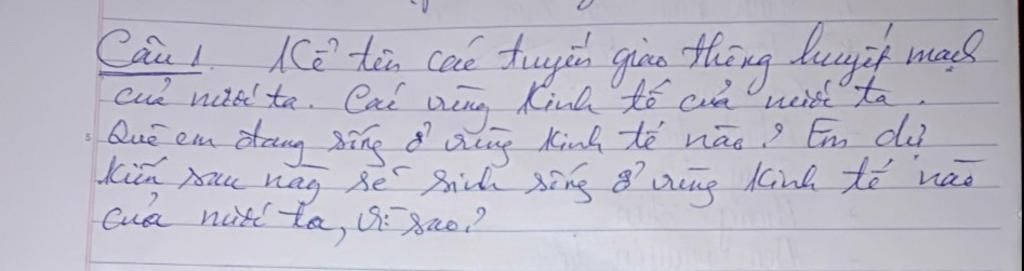 Câu 1. Kể tên các tuyến giao thông huyết mạch
của nước ta. Các vùng kinh tế của nước ta.
Quê em đang sống ở vùng kinh tế nào? Em dự
kiến sau này sẽ sinh sống ở vùng kinh tế nào
của nước ta, vì sao?